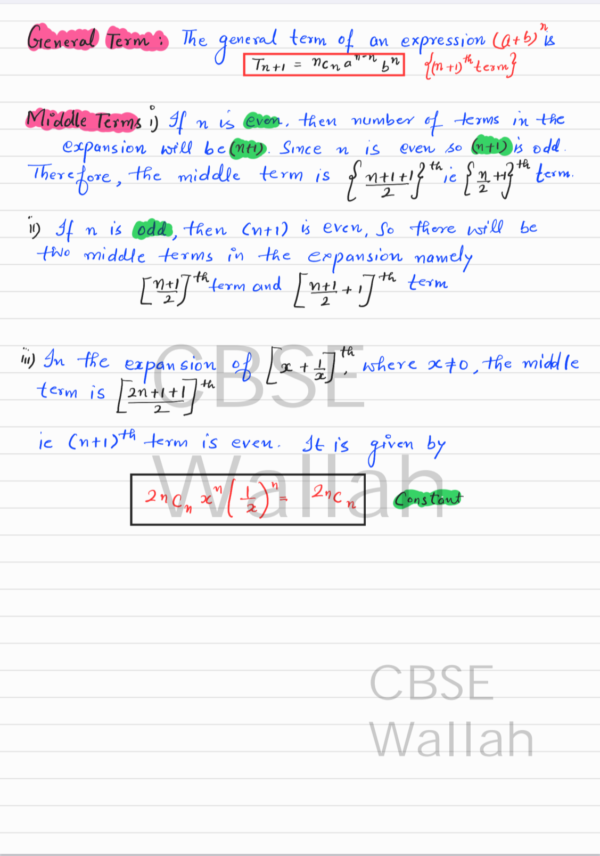 General Term : The general term of an expression (a+b)ⁿ is
Tn+1 = nCn aⁿ⁻ⁿ bⁿ {(n+1)ᵗʰ term}
Middle Terms i) If n is even, then number of terms in the
expansion will be (n+1). Since n is even so (n+1) is odd.
Therefore, the middle term is {(n+1+1)/2}ᵗʰ ie {n/2 +1}ᵗʰ term.
ii) If n is odd, then (n+1) is even, So there will be
two middle terms in the expansion namely
[(n+1)/2]ᵗʰ term and [(n+1)/2 + 1]ᵗʰ term
iii) In the expansion of [x + 1/x]ᵗʰ, where x≠0, the middle
term is [(2n+1+1)/2]ᵗʰ
ie (n+1)ᵗʰ term is even. It is given by
2nCn xⁿ (1/x)ⁿ = 2nCn Constant
CBSE
Wallah
CBSE
Wallah